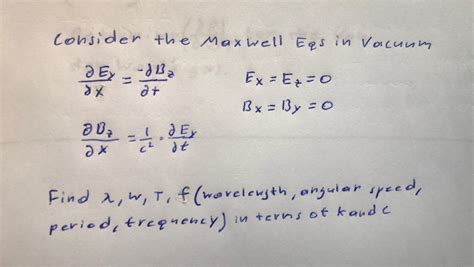 Consider the Maxwell Eqs in Vacuum
∂Ey/∂x = -∂Bz/∂t    Ex = Ez = 0
Bx = By = 0
∂Bz/∂x = 1/c² · ∂Ey/∂t
Find λ, w, T, f (wavelength, angular speed,
period, frequency) in terms of k and c